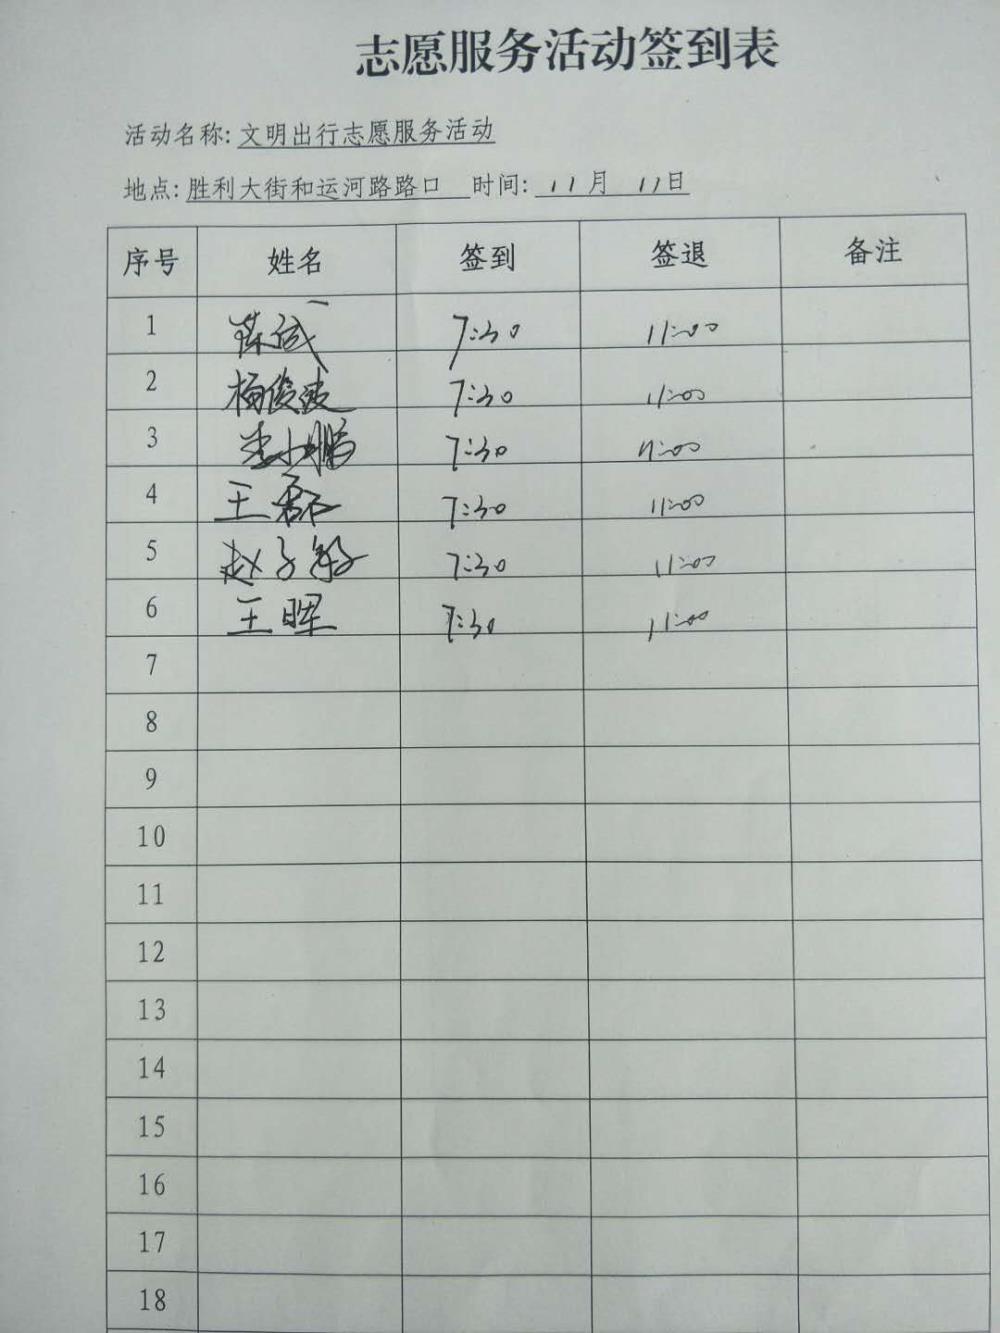 志愿服务活动签到表
活动名称: 文明出行志愿服务活动
地点: 胜利大街和运河路路口 时间: 11月 11日
序号 姓名 签到 签退 备注
1 7:30 11:00
2 杨俊波 7:30 11:00
3 李小鹏 7:30 11:00
4 王磊 7:30 11:00
5 赵子毅 7:30 11:00
6 王晖 7:30 11:00
7
8
9
10
11
12
13
14
15
16
17
18